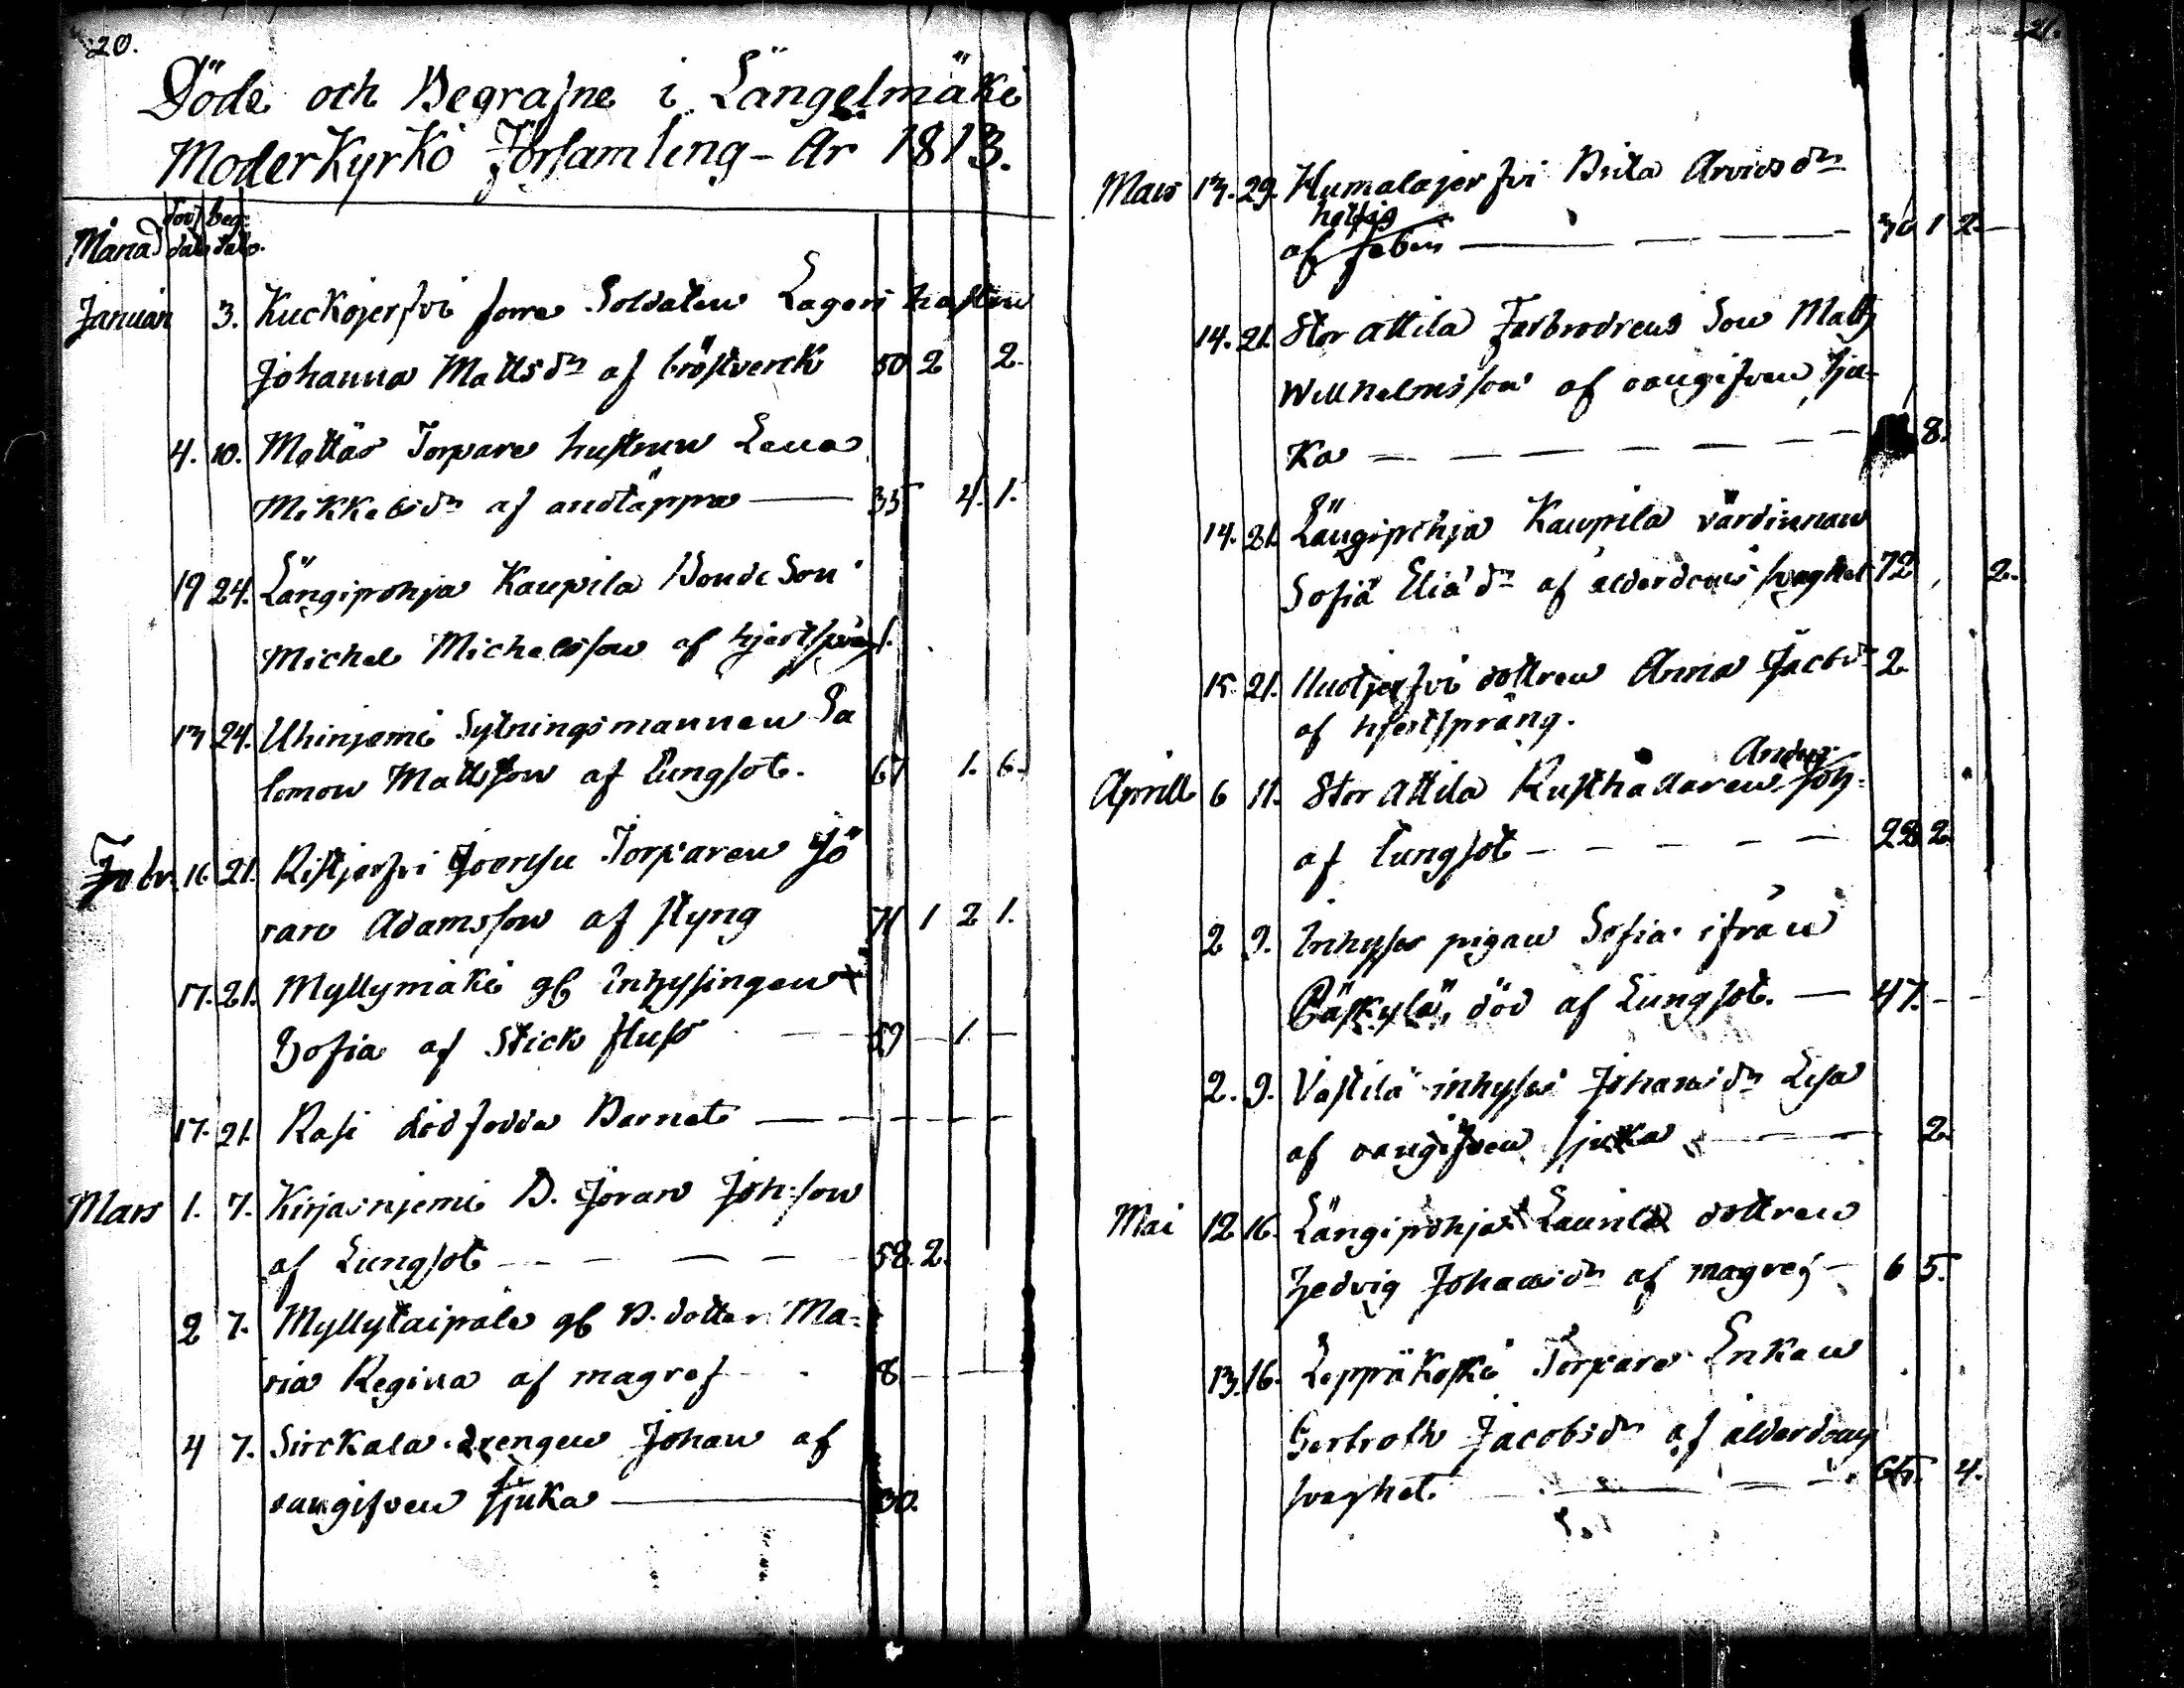 20.
Döde och Begrafne i Längelmäki
ModerKyrKo Församling - År 1813.
Månad död beg:
dato dato.
Januari 3. Kuckojerfvi forre Soldaten Lagers hustru
Johanna Mattsdr af bröstverck 50 2 2.
4. 10. Mattas Torpare hustrun Lena
Mikkelsdr af andtäppa — 35 4. 1.
19 24. Längipohja Kaupila Bonde Son
Michel Michelsson af hjertspång 1.
13 24. Uhinjemi Sytningsmannen Sa
lomon Mattsson af lungsot. 67 1. 6.
Febr. 16 21. Ristjerfvi Joensu Torparen Jö
ran Adamsson af styng 71 1 2 1.
17. 21. Myllymäki gl Inhysingen
Sofia af Stick fluss — 59 — 1. —
17. 21. Rasi död fodda Barnet — — — —
Mars 1. 7. Kirjasnjemi B. Jöran Joh:son
af Lungsot — — — — 58. 2.
2 7. Myllytaipale gl B. dotter Ma-
ria Regina af magref 8 — —
4 7. Sirckala drengen Johan af
oangifven sjuka — 30.
21.
Mars 13. 29. Humalajerfvi Brita Arvidsdr
hetsig
af feber — — — — 30 1 2. —
14. 21. Stor attila Farbrodrens Son Matts
Willhelmsson af oangifven sju-
Ka — — — — — — 8.
14. 21. Längipohja Kaupila värdinnan
Sofia Eliædr af ålderdoms svaghet 72 2.
15. 21. Huotjerfvi dottren Anna Jacobsdr 2.
af hjertspräng.
Anders
Aprill 6 11. Stor Attila Rusthållaren Joh:
af Lungsot — — — — — 22 2.
2 9. Inhyses pigan Sofia ifrån
Päskylä, död af Lungsot. — 47. — —
2. 9. Västilä inhyses Johansdr Lisa
af oangifven sjuka — — — 2.
Mai 12 16. Längipohja Laurila dottren
Hedvig Johansdr af magref — 6 5.
13. 16. Leppäkoski Torpare Enkan
Gertroth Jacobsdr af ålderdoms
svaghet. — — — — 65. 4.